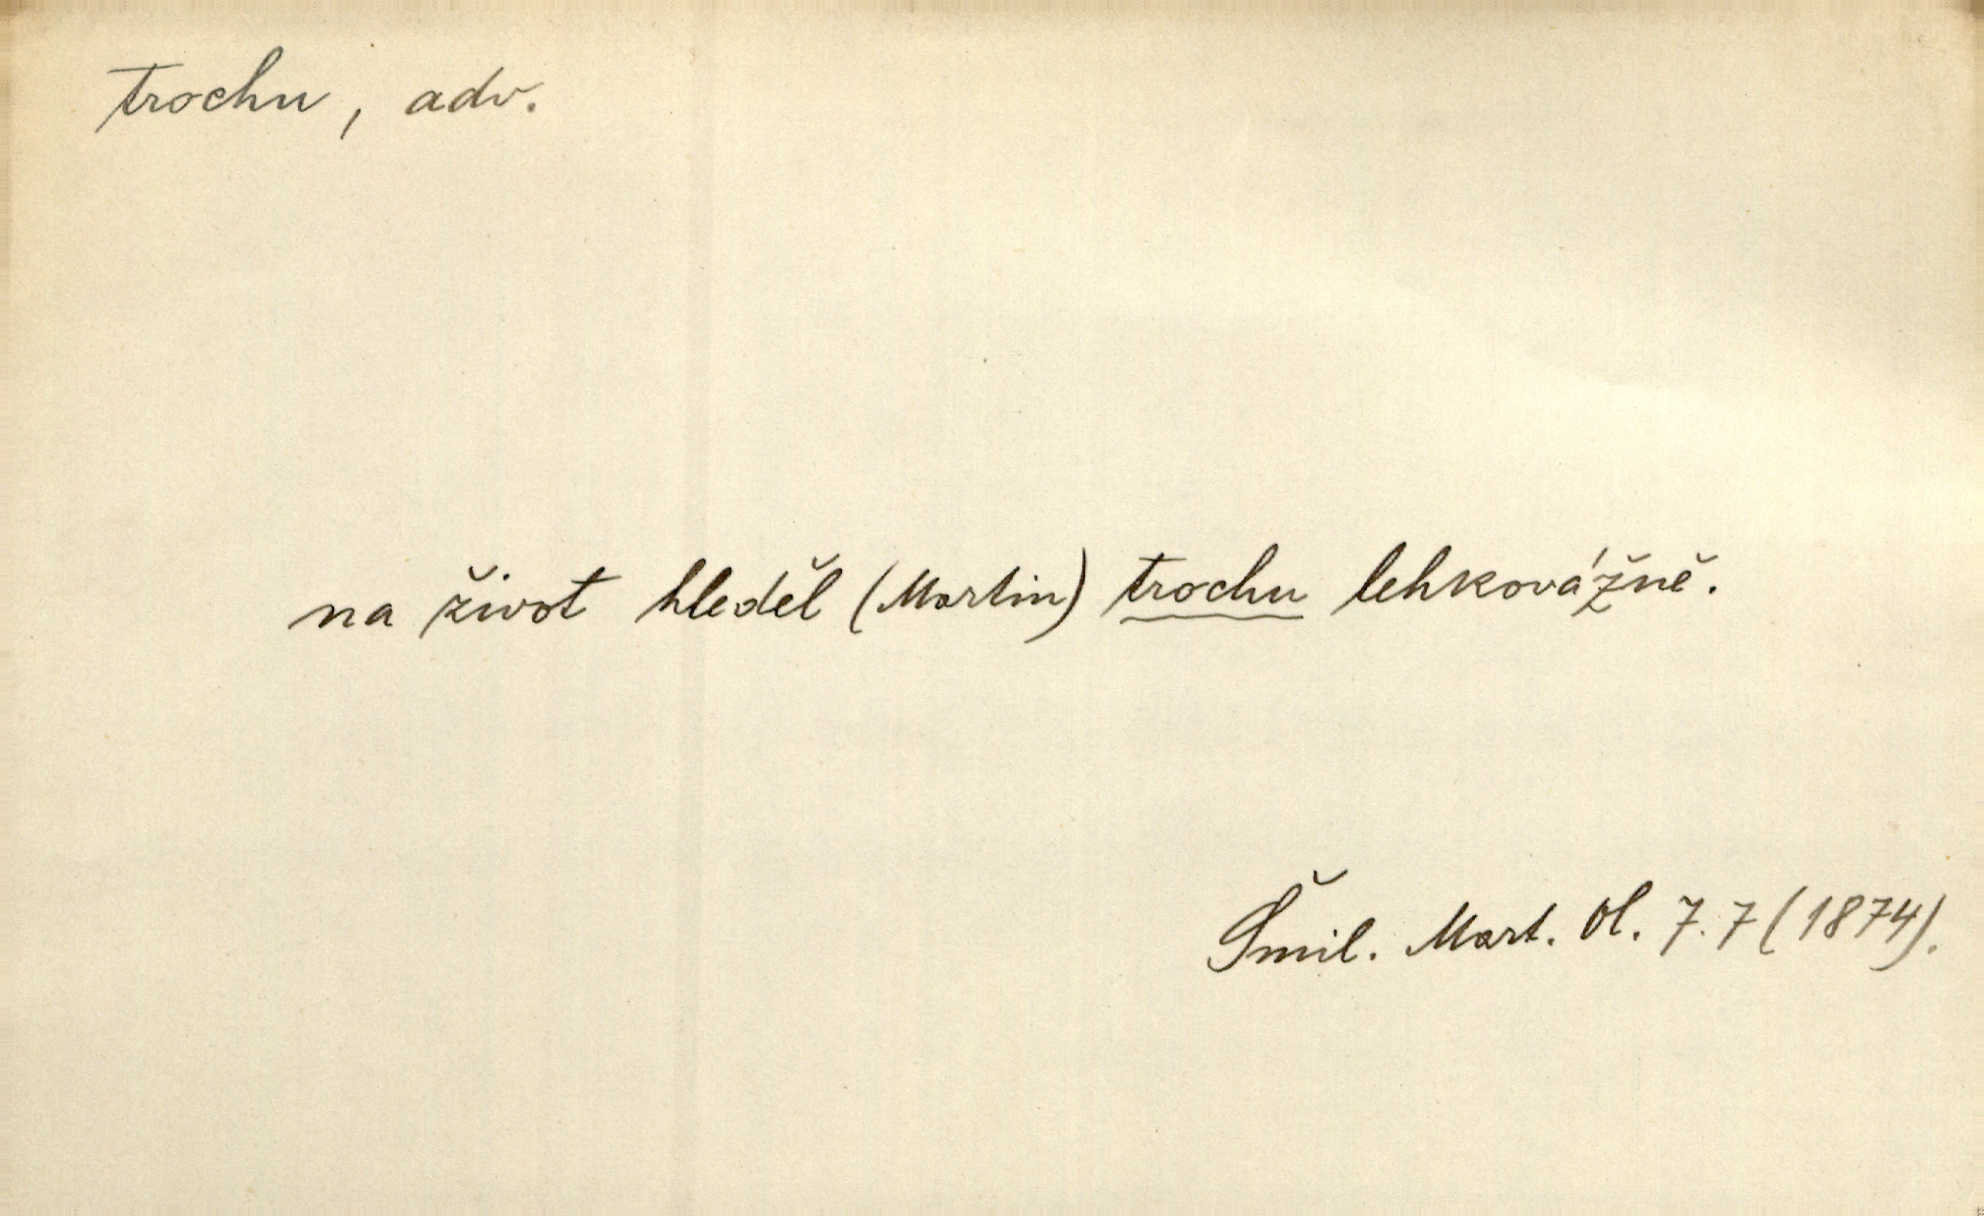 trochu, adv.
na život hleděl (Martin) trochu lehkovážně.
Šmil. Mart. Ol. 7.7 (1874).